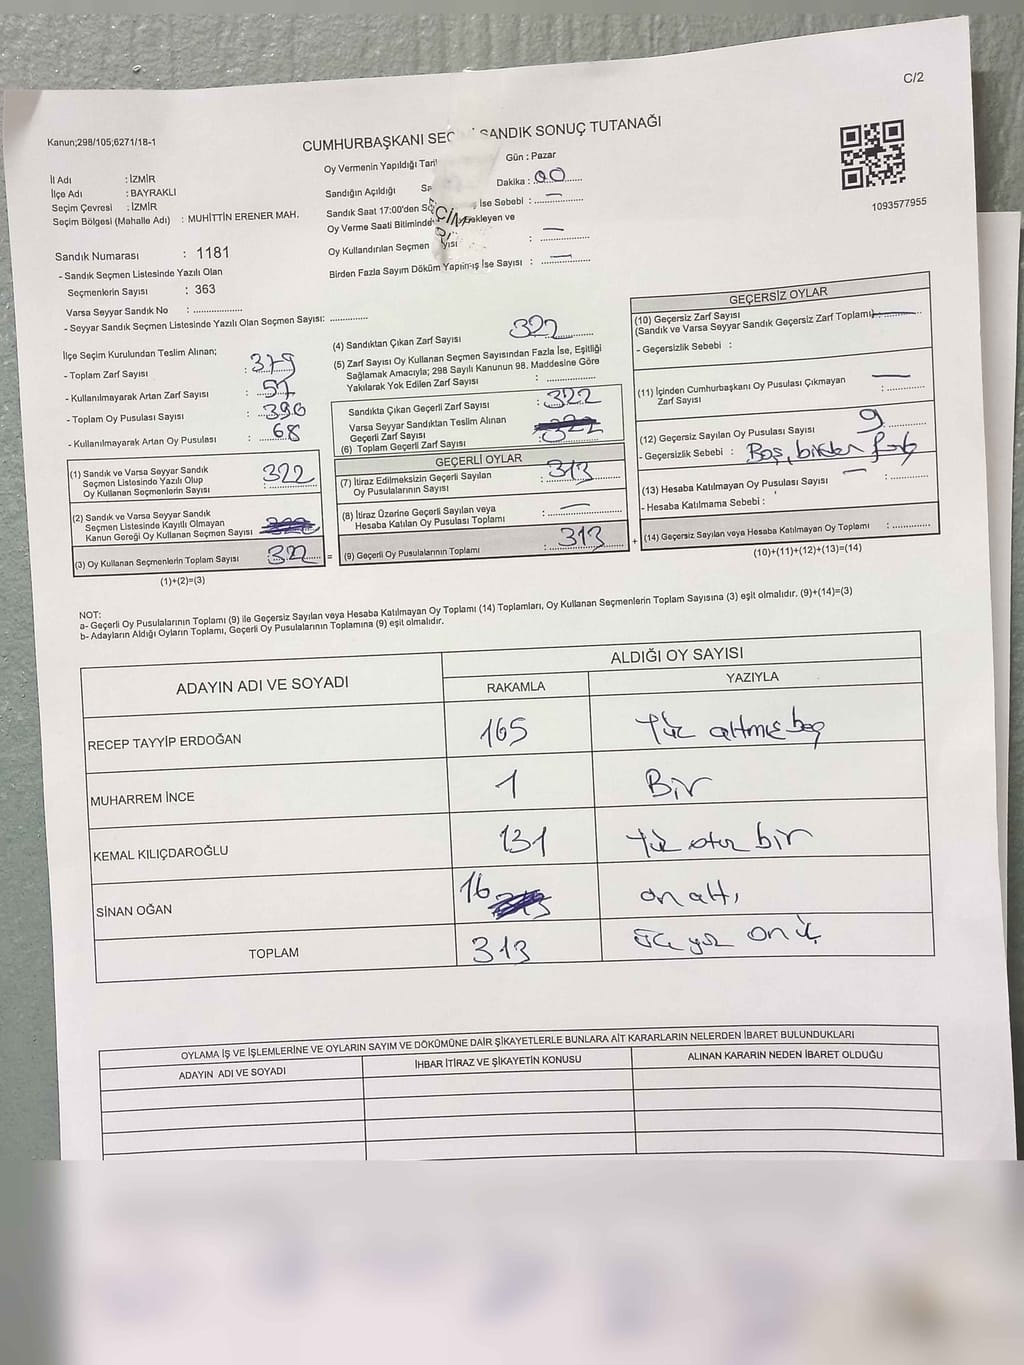 C/2
Kanun;298/105;6271/18-1
CUMHURBAŞKANI SEÇ SANDIK SONUÇ TUTANAĞI
Oy Vermenin Yapıldığı Tari Gün : Pazar
İl Adı : İZMİR
İlçe Adı : BAYRAKLI
Seçim Çevresi : İZMİR
Seçim Bölgesi (Mahalle Adı) : MUHİTTİN ERENER MAH.
Sandığın Açıldığı Sa Dakika : 00
Sandık Saat 17:00'den İse Sebebi : —
Oy Verme Saati Bitiminde Bekleyen ve
Oy Kullandırılan Seçmen : —
Birden Fazla Sayım Döküm Yapılmış İse Sayısı : —
1093577955
Sandık Numarası : 1181
- Sandık Seçmen Listesinde Yazılı Olan
Seçmenlerin Sayısı : 363
Varsa Seyyar Sandık No :
- Seyyar Sandık Seçmen Listesinde Yazılı Olan Seçmen Sayısı:
İlçe Seçim Kurulundan Teslim Alınan;
- Toplam Zarf Sayısı : 379
- Kullanılmayarak Artan Zarf Sayısı : 57
- Toplam Oy Pusulası Sayısı : 390
- Kullanılmayarak Artan Oy Pusulası : 68
(1) Sandık ve Varsa Seyyar Sandık
Seçmen Listesinde Yazılı Olup
Oy Kullanan Seçmenlerin Sayısı : 322
(2) Sandık ve Varsa Seyyar Sandık
Seçmen Listesinde Kayıtlı Olmayan
Kanun Gereği Oy Kullanan Seçmen Sayısı
(3) Oy Kullanan Seçmenlerin Toplam Sayısı : 322 =
(1)+(2)=(3)
(4) Sandıktan Çıkan Zarf Sayısı : 322
(5) Zarf Sayısı Oy Kullanan Seçmen Sayısından Fazla İse, Eşitliği
Sağlamak Amacıyla; 298 Sayılı Kanunun 98. Maddesine Göre
Yakılarak Yok Edilen Zarf Sayısı :
Sandıkta Çıkan Geçerli Zarf Sayısı : 322
Varsa Seyyar Sandıktan Teslim Alınan
Geçerli Zarf Sayısı
(6) Toplam Geçerli Zarf Sayısı : 322
GEÇERLİ OYLAR
(7) İtiraz Edilmeksizin Geçerli Sayılan
Oy Pusulalarının Sayısı : 313
(8) İtiraz Üzerine Geçerli Sayılan veya
Hesaba Katılan Oy Pusulası Toplamı : —
(9) Geçerli Oy Pusulalarının Toplamı : 313 +
GEÇERSİZ OYLAR
(10) Geçersiz Zarf Sayısı
(Sandık ve Varsa Seyyar Sandık Geçersiz Zarf Toplamı) —
- Geçersizlik Sebebi :
(11) İçinden Cumhurbaşkanı Oy Pusulası Çıkmayan
Zarf Sayısı : —
(12) Geçersiz Sayılan Oy Pusulası Sayısı : 9
- Geçersizlik Sebebi : Boş, birden
(13) Hesaba Katılmayan Oy Pusulası Sayısı : —
- Hesaba Katılmama Sebebi :
(14) Geçersiz Sayılan veya Hesaba Katılmayan Oy Toplamı :
(10)+(11)+(12)+(13)=(14)
NOT:
a- Geçerli Oy Pusulalarının Toplamı (9) ile Geçersiz Sayılan veya Hesaba Katılmayan Oy Toplamı (14) Toplamları, Oy Kullanan Seçmenlerin Toplam Sayısına (3) eşit olmalıdır. (9)+(14)=(3)
b- Adayların Aldığı Oyların Toplamı, Geçerli Oy Pusulalarının Toplamına (9) eşit olmalıdır.
ADAYIN ADI VE SOYADI ALDIĞI OY SAYISI
RAKAMLA YAZIYLA
RECEP TAYYİP ERDOĞAN 165 Yüz altmış beş
MUHARREM İNCE 1 Bir
KEMAL KILIÇDAROĞLU 131 Yüz otuz bir
SİNAN OĞAN 16 on altı
TOPLAM 313 üç yüz on üç
OYLAMA İŞ VE İŞLEMLERİNE VE OYLARIN SAYIM VE DÖKÜMÜNE DAİR ŞİKAYETLERLE BUNLARA AİT KARARLARIN NELERDEN İBARET BULUNDUKLARI
ADAYIN ADI VE SOYADI İHBAR İTİRAZ VE ŞİKAYETİN KONUSU ALINAN KARARIN NEDEN İBARET OLDUĞU